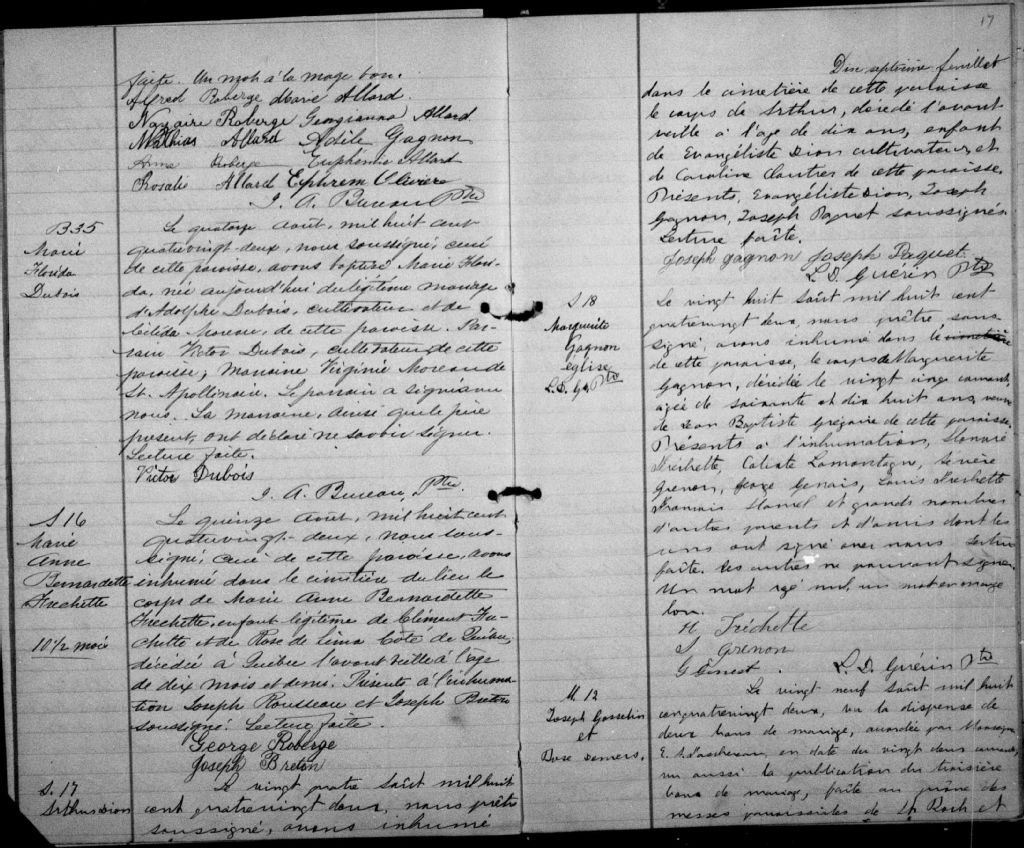 faite. Un mot à la marge bon.
Alfred Roberge Marie Allard
Nazaire Roberge Georgianna Allard
Mathias Allard Adèle Gagnon
Anna Roberge Euphemie Allard
Rosalie Allard Ephrem Olivier
J. A. Bureau Ptre
B35
Marie
Florida
Dubois
Le quatorze août, mil huit cent
quatrevingt deux, nous soussigné, curé
de cette paroisse, avons baptisé Marie Flori-
da, née aujourd'hui du légitime mariage
d'Adolphe Dubois, cultivateur et de
Moreau, de cette paroisse. Par-
rain Victor Dubois, cultivateur, de cette
paroisse; marraine Virginie Moreau de
St. Apollinaire. Le parrain a signé avec
nous. La marraine, ainsi que le père
présent, ont déclaré ne savoir signer.
Lecture faite.
Victor Dubois
J. A. Bureau, Ptre.
S 16
Marie
Anne
Bernardette
Frechette
10½ mois
Le quinze Août, mil huit cent
quatrevingt-deux, nous sous-
signé, curé de cette paroisse, avons
inhumé dans le cimetière du lieu le
corps de Marie Anne Bernardette
Frechette, enfant légitime de Clément Fre-
chette et de Rose de Lima Côté de Québec,
décédée à Québec l'avant veille à l'age
de dix mois et demi. Présents à l'inhuma-
tion Joseph Rousseau et Joseph Breton
soussigné. Lecture faite.
George Roberge
Joseph Breton
S. 17
Arthur Dion
Le vingt quatre Août mil huit
cent quatrevingt deux, nous prêtre
soussigné, avons inhumé
17
Dix septième feuillet
dans le cimetière de cette paroisse
le corps de Arthur, décédé l'avant
veille à l'age de dix ans, enfant
de Evangéliste Dion cultivateur, et
de Caroline Cloutier de cette paroisse.
Présents, Evangéliste Dion, Joseph
Gagnon, Joseph Paquet soussignés.
Lecture faîte.
Joseph gagnon Joseph Paquet
L. D. Guérin Ptre
S 18
Marguerite
Gagnon
église
L. D. G. Ptre
Le vingt huit Août mil huit cent
quatrevingt deux, nous prêtre, sous-
signé, avons inhumé dans le cimetière
de cette paroisse, le corps de Marguerite
Gagnon, décédée le vingt cinq courant,
agée de soixante et dix huit ans, veuve
de Jean Baptiste Grégoire de cette paroisse.
Présents à l'inhumation, Honoré
Frechette, Calixte Lamontagne, Sévère
Grenon, George Genais, Louis Frechette
François Hamel et grands nombres
d'autres parents et d'amis dont les
uns ont signé avec nous Lecture
faîte. Les autres ne pouvant signer.
Un mot rayé nul, un mot en marge
bon.
H Fréchette
S Grenon
G Genest. L. D. Guérin Ptre
M. 12
Joseph Gosselin
et
Rose Demers.
Le vingt neuf Août mil huit
cent quatrevingt deux, vu la dispense de
deux bans de mariage, accordée par Monseigneur
E. A. Taschereau, en date du vingt deux courant,
vu aussi la publication du troisième
bans de mariage, faîte au prône des
messes paroissiales de St Roch et